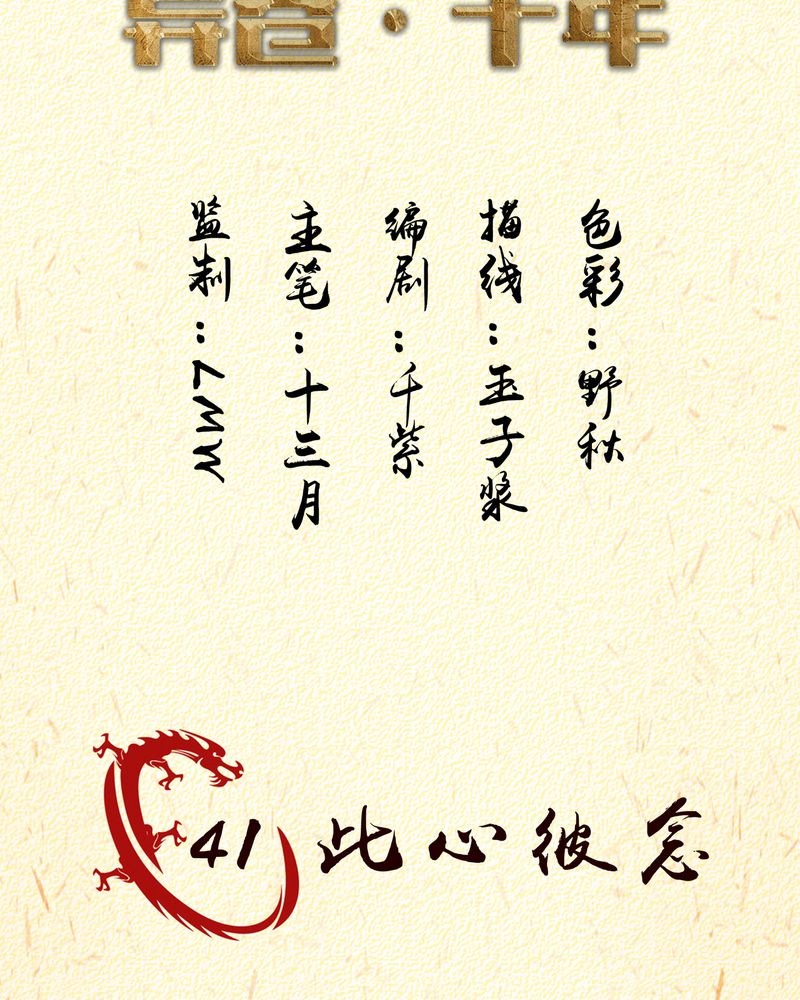 监制：7MW
主笔：十三月
编剧：千紫
描线：玉子浆
色彩：野秋
41 此心彼念